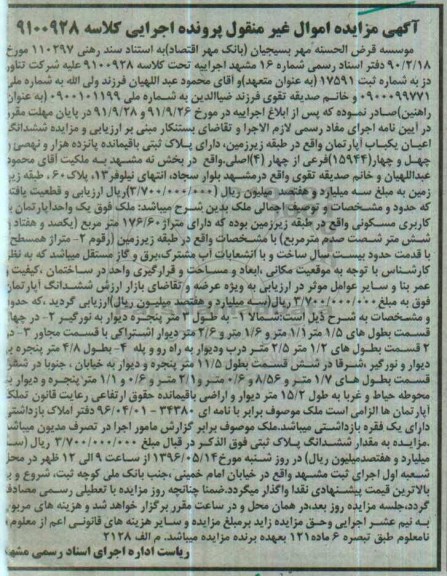 آگهی مزایده اموال غیر منقول پرونده اجرایی کلاسه ۹۱۰۰۹۲۸
موسسه قرض الحسنه مهر بسیجیان (بانک مهر اقتصاد)به استناد سند رهنی ۱۱۰۲۹۷ مورخ
۹۰/۲/۱۸ دفتر اسناد رسمی شماره ۱۶ مشهد اجراییه تحت کلاسه ۹۱۰۰۹۲۸ علیه شرکت تناور
دژ به شماره ثبت ۱۷۵۹۱ (به عنوان متعهد)و آقای محمود عبد اللهیان فرزند ولی الله به شماره ملی
۰۹۰۰۰۹۹۷۷۱ و خانم صدیقه تقوی فرزند ضیاالدین به شماره ملی ۰۹۰۰۱۰۱۱۹۹ (به عنوان
راهنین)صادر نموده که پس از ابلاغ اجراییه در مورخ ۹۱/۹/۲۶ و ۹۱/۹/۲۸ در پایان مهلت مقرر
در آیین نامه اجرای مفاد رسمی لازم الاجرا و تقاضای بستنکار مبنی بر ارزیابی و مزایده ششدانگ
اعیان یکباب آپارتمان واقع در طبقه زیرزمین، دارای پلاک ثبتی باقیمانده پانزده هزار و نهصد و
چهل و چهار(۱۵۹۴۴)فرعی از چهار (۴)اصلی.واقع در بخش نه مشهد به ملکیت آقای محمود
عبداللهیان و خانم صدیقه تقوی واقع درمشهد بلوار سجاد، انتهای نیلوفر۱۳، پلاک۶۰، طبقه زیر
زمین به مبلغ سه میلیارد و هفتصد میلیون ریال (۳/۷۰۰/۰۰۰/۰۰۰)ریال ارزیابی و قطعیت یافت
که حدود و مشخصات و توصیف اجمالی ملک بدین شرح میباشد: ملک فوق یک واحداپارتمان با
کاربری مسکونی واقع در طبقه زیرزمین بوده که دارای متراژ۱۷۶/۶۰ متر مربع (یکصد و هفتاد و
شش متر شصت صدم مترمربع) با مشخصات واقع در طبقه زیرزمین (رقوم ۲- متراز همسطح)
با قدمت حدود بیست سال ساخت و با انشعابات آب مشترک،برق و گاز مستقل میباشد که به نظر
کارشناس با توجه به موقعیت مکانی ،ابعاد و مساحت و قرارگیری واحد در ساختمان ،کیفیت و
عمر بنا و سایر عوامل موثر در ارزیابی به ویژه عرضه و تقاضای بازار ارزش ششدانگ آپارتمان
فوق به مبلغ۳/۷۰۰/۰۰۰/۰۰۰ ریال(سه میلیارد و هفتصد میلیون ریال)ارزیابی گردید ،که حدود
و مشخصات به شرح ذیل است:شمالا ۱- به طول ۳ متر پنجره دیوار به نورگیر ۲- در چهار
قسمت بطول های ۱/۵ متر ۱/۱ متر و ۱/۶ متر و ۲/۶ متر دیوار اشتراکی با قسمت مجاور ۳- در
۲ قسمت بطول های ۱/۲ متر ۲/۵ متر درب ودیوار به راه رو و پله ۴- بطول ۴/۸ متر پنجره یی
دیوار و نورگیر ،شرقا در شش قسمت بطول ۱۱/۵ متر پنجره و دیوار به خیابان ، جنوبا در شش
قسمت بطول های ۱/۷ متر و ۸/۵۶ و ۰/۶ متر و ۲/۱ متر و ۰/۶ و ۱/۱ متر پنجره و دیوار به
محوطه حیاط و غربا به طول ۱۵/۲ متر دیوار و اراضی باقیمانده حقوق ارتفاعی رعایت قانون تملک
آپارتمان ها الزامی است ملک موصوف برابر با نامه ای ۳۴۳۸۰ - ۹۶/۰۴/۰۱ دفتر املاک بازداشتی
دارای یک فقره بازداشتی میباشد.ملک موصوف برابر گزارش مامور اجرا در تصرف مدیون میباشد
.مزایده به مقدار ششدانگ پلاک ثبتی فوق الذکر در قبال مبلغ ۳/۷۰۰/۰۰۰/۰۰۰ ریال (سه
میلیارد و هفتصدمیلیون ریال) در روز شنبه مورخ۱۳۹۶/۰۵/۱۴ از ساعت ۹ الی ۱۲ ظهر در محل
شعبه اول اجرای ثبت مشهد واقع در خیابان امام خمینی ،جنب بانک ملی کوچه ثبت، شروع و به
بالاترین قیمت پیشنهادی نقدا واگذار میگردد.ضمنا چنانچه روز مزایده با تعطیلی رسمی مصادف
گردد،جلسه مزایده روز بعد،در همان محل و در ساعت مقرر برگزار خواهد شد و هزینه های مربوط
به نیم عشر اجرایی وحق مزایده زاید برمبلغ مزایده و سایر هزینه های قانونی اعم از معلوم و
نامعلوم طبق تبصره ۶ ماده۱۲۱ بعهده برنده مزایده میباشد. م الف ۲۱۲۸
ریاست اداره اجرای اسناد رسمی مشهد